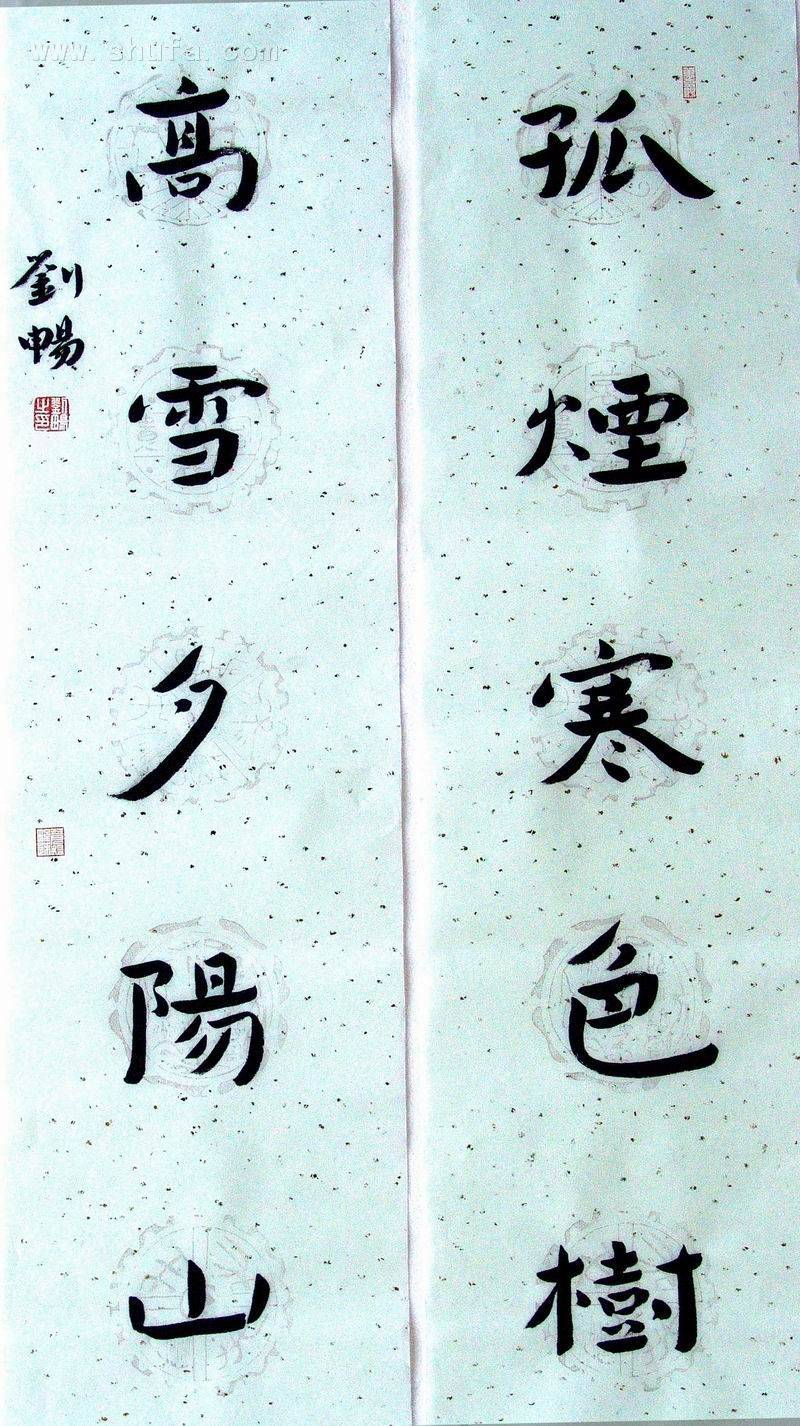 孤煙寒色樹
高雪夕陽山
劉暢
www.shufa.com